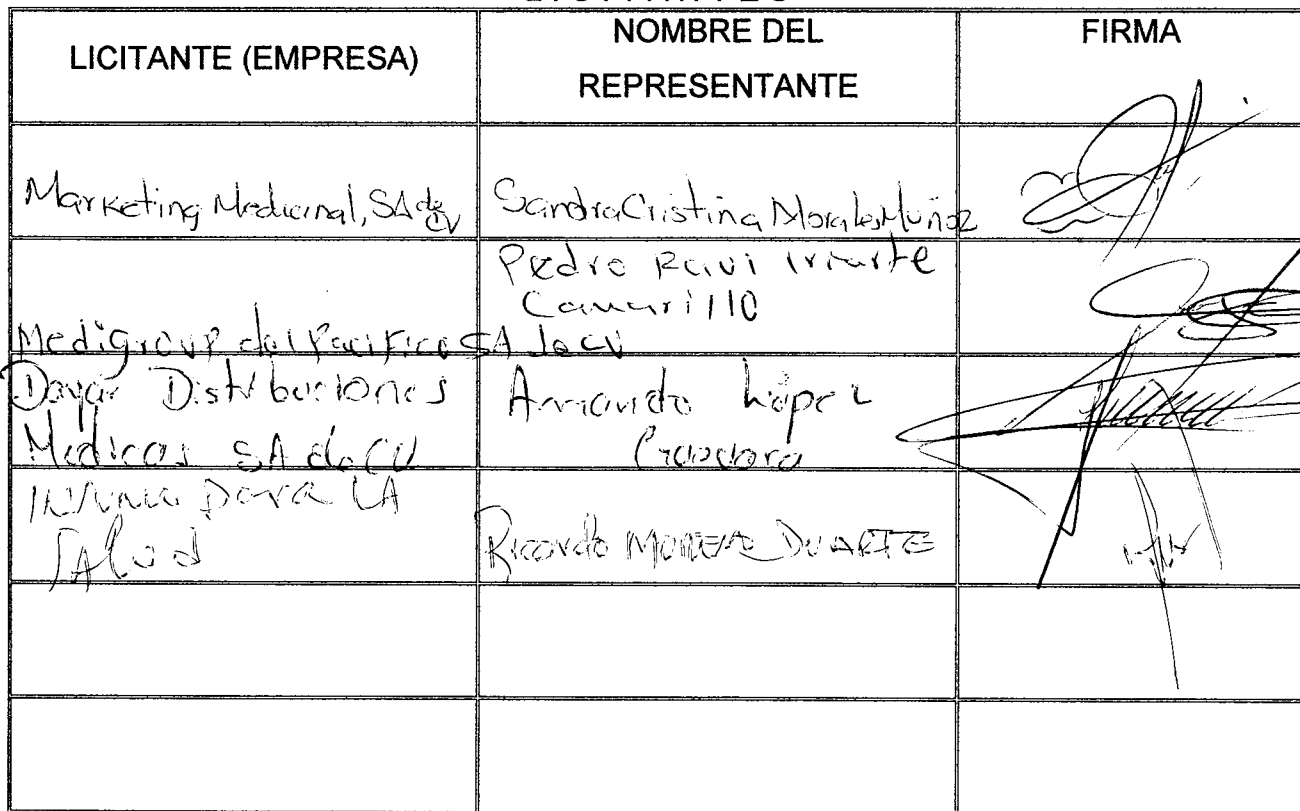 LICITANTE (EMPRESA)
NOMBRE DEL
REPRESENTANTE
FIRMA
Marketing Medicinal, SA de CV
Sandra Cristina Morales Muñoz
Medigroup del Pacifico SA de CV
Pedro Iriarte
Camarillo
Distribuciones
Medicas SA de CV
Armando López
PARA LA
SAlud
Ricardo MORENO DUARTE